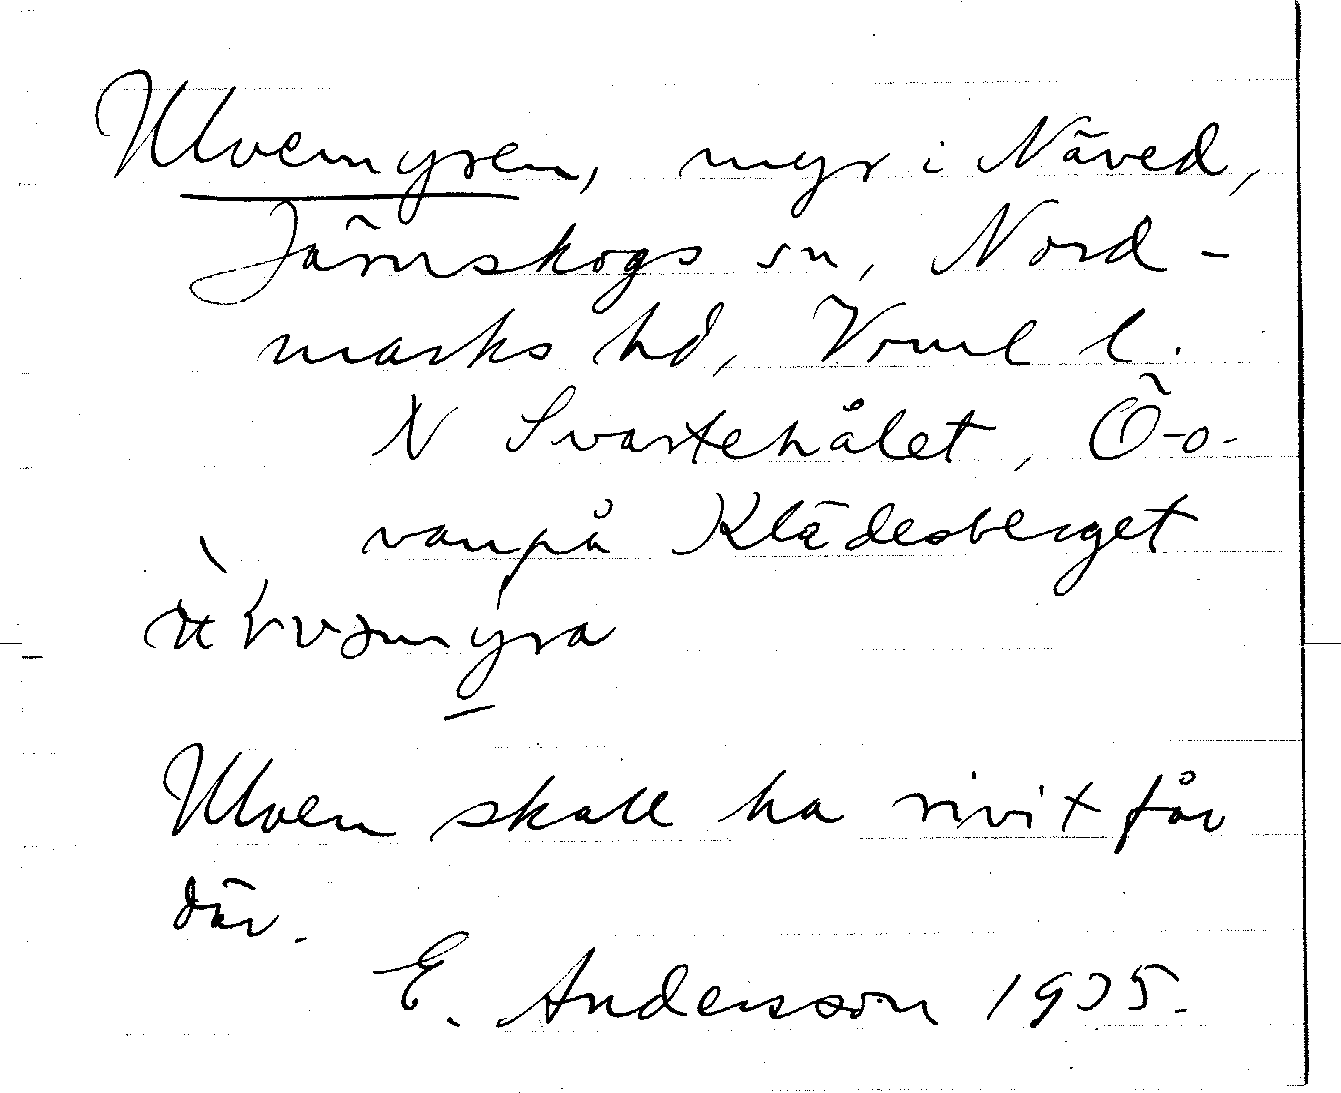 Ulvemyren, myr i Näved,
Järnskogs sn, Nord-
marks hd, Verml l.
N Svartehålet, Ö-o-
vanpå Klädesberget
Ulven skall ha rivit får
där.
E. Andersson 1935.